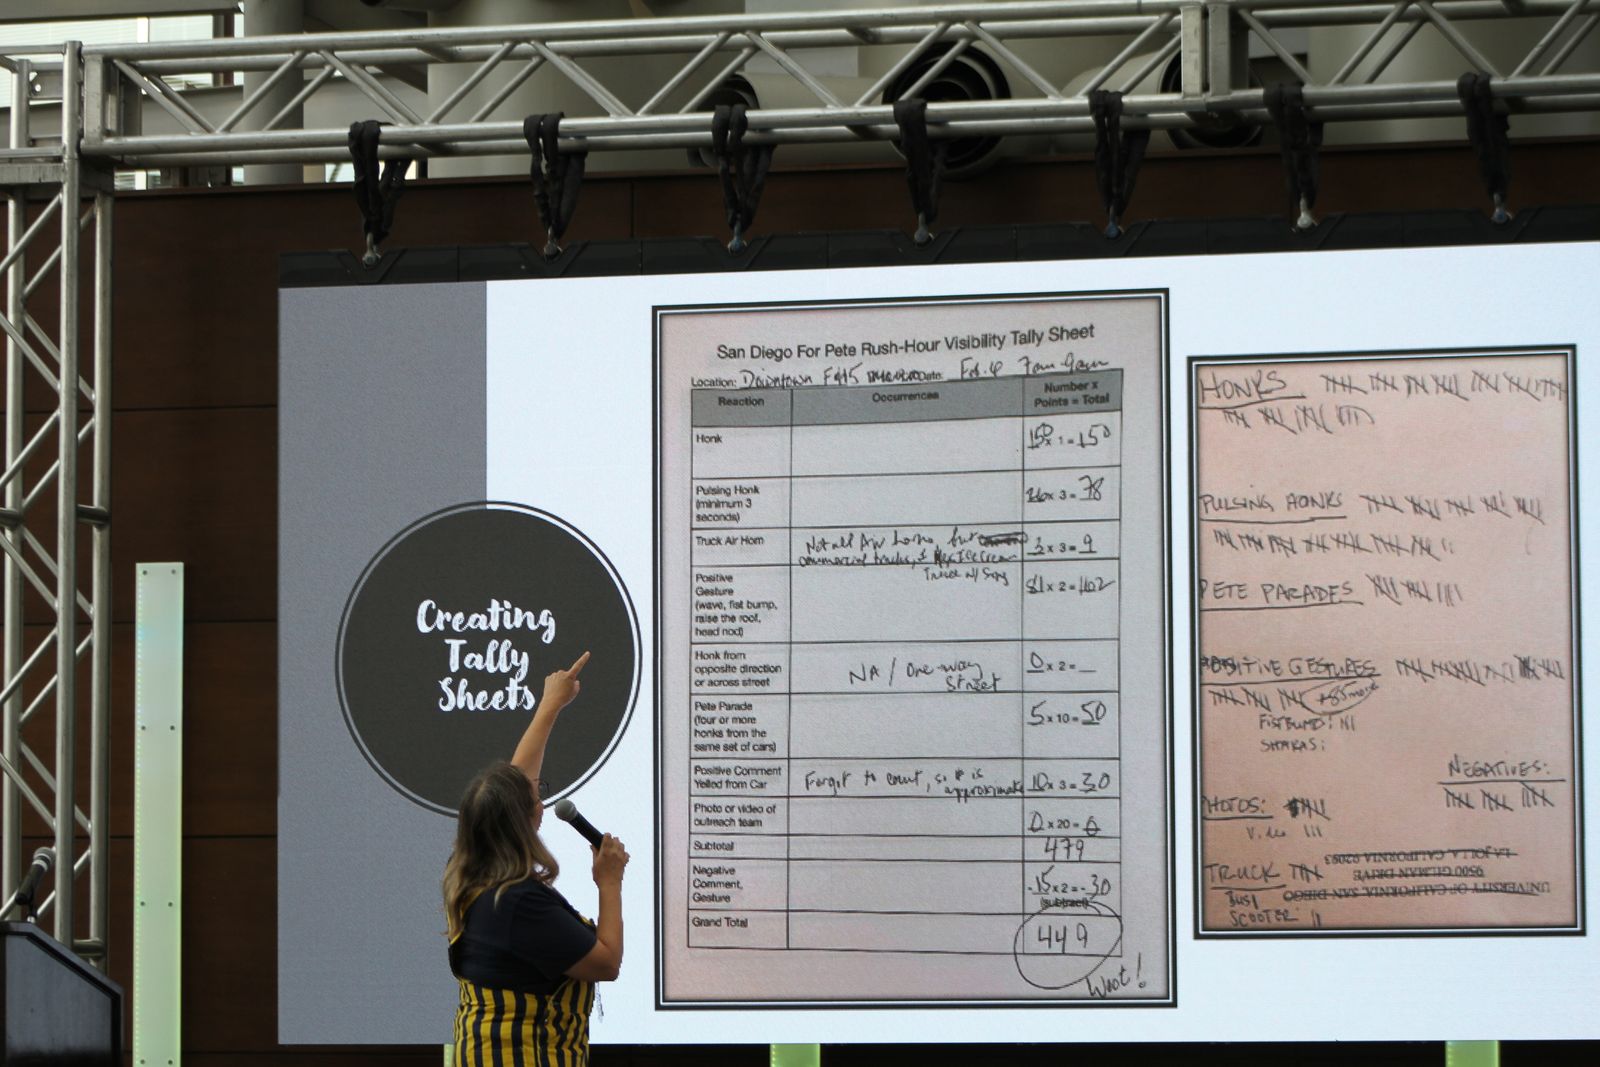 Creating
Tally
Sheets
San Diego For Pete Rush-Hour Visibility Tally Sheet
Location: Downtown Date: Feb. 4 7am-9am
Reaction Occurrences Number x
Points = Total
Honk 150 x 1 = 150
Pulsing Honk
(minimum 3
seconds)
26 x 3 = 78
Truck Air Horn
Not all Air horns, but
commercial trucks, & Ice Cream
Truck w/ Song
3 x 3 = 9
Positive
Gesture
(wave, fist bump,
raise the roof,
head nod)
51 x 2 = 102
Honk from
opposite direction
or across street
NA / One-way
Street
0 x 2 = _
Pete Parade
(four or more
honks from the
same set of cars)
5 x 10 = 50
Positive Comment
Yelled from Car
Forgot to count, so # is
approximate
10 x 3 = 30
Photo or video of
outreach team
0 x 20 = 0
Subtotal 479
Negative
Comment,
Gesture
-15 x 2 = -30
(subtract)
Grand Total 449
Woot!
HONKS
PULSING HONKS
PETE PARADES
POSITIVE GESTURES
+85 more
FISTBUMP:
SHAKAS:
NEGATIVES:
PHOTOS:
Video
TRUCK
BUS
SCOOTER
UNIVERSITY OF CALIFORNIA, SAN DIEGO
9500 GILMAN DRIVE
LA JOLLA, CALIFORNIA 92093